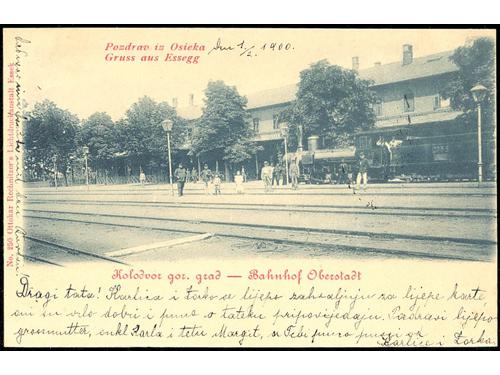 Pozdrav iz Osieka
Gruss aus Essegg
Dne 1/2. 1900.
No. 250 Ottokar Rechnitzer's Lichtdruckanstalt Essek
Kolodvor gor. grad — Bahnhof Oberstadt
Dragi tata! Karlica i Zorka se lijepo zahvaljuju za lijepe karte
oni su vrlo dobri i puno o tateku pripovijedaju. Pozdravi lijepo
grossmutter, onkl Karla i tetu Margit, a Tebi puno pusi od
Karlice i Zorka